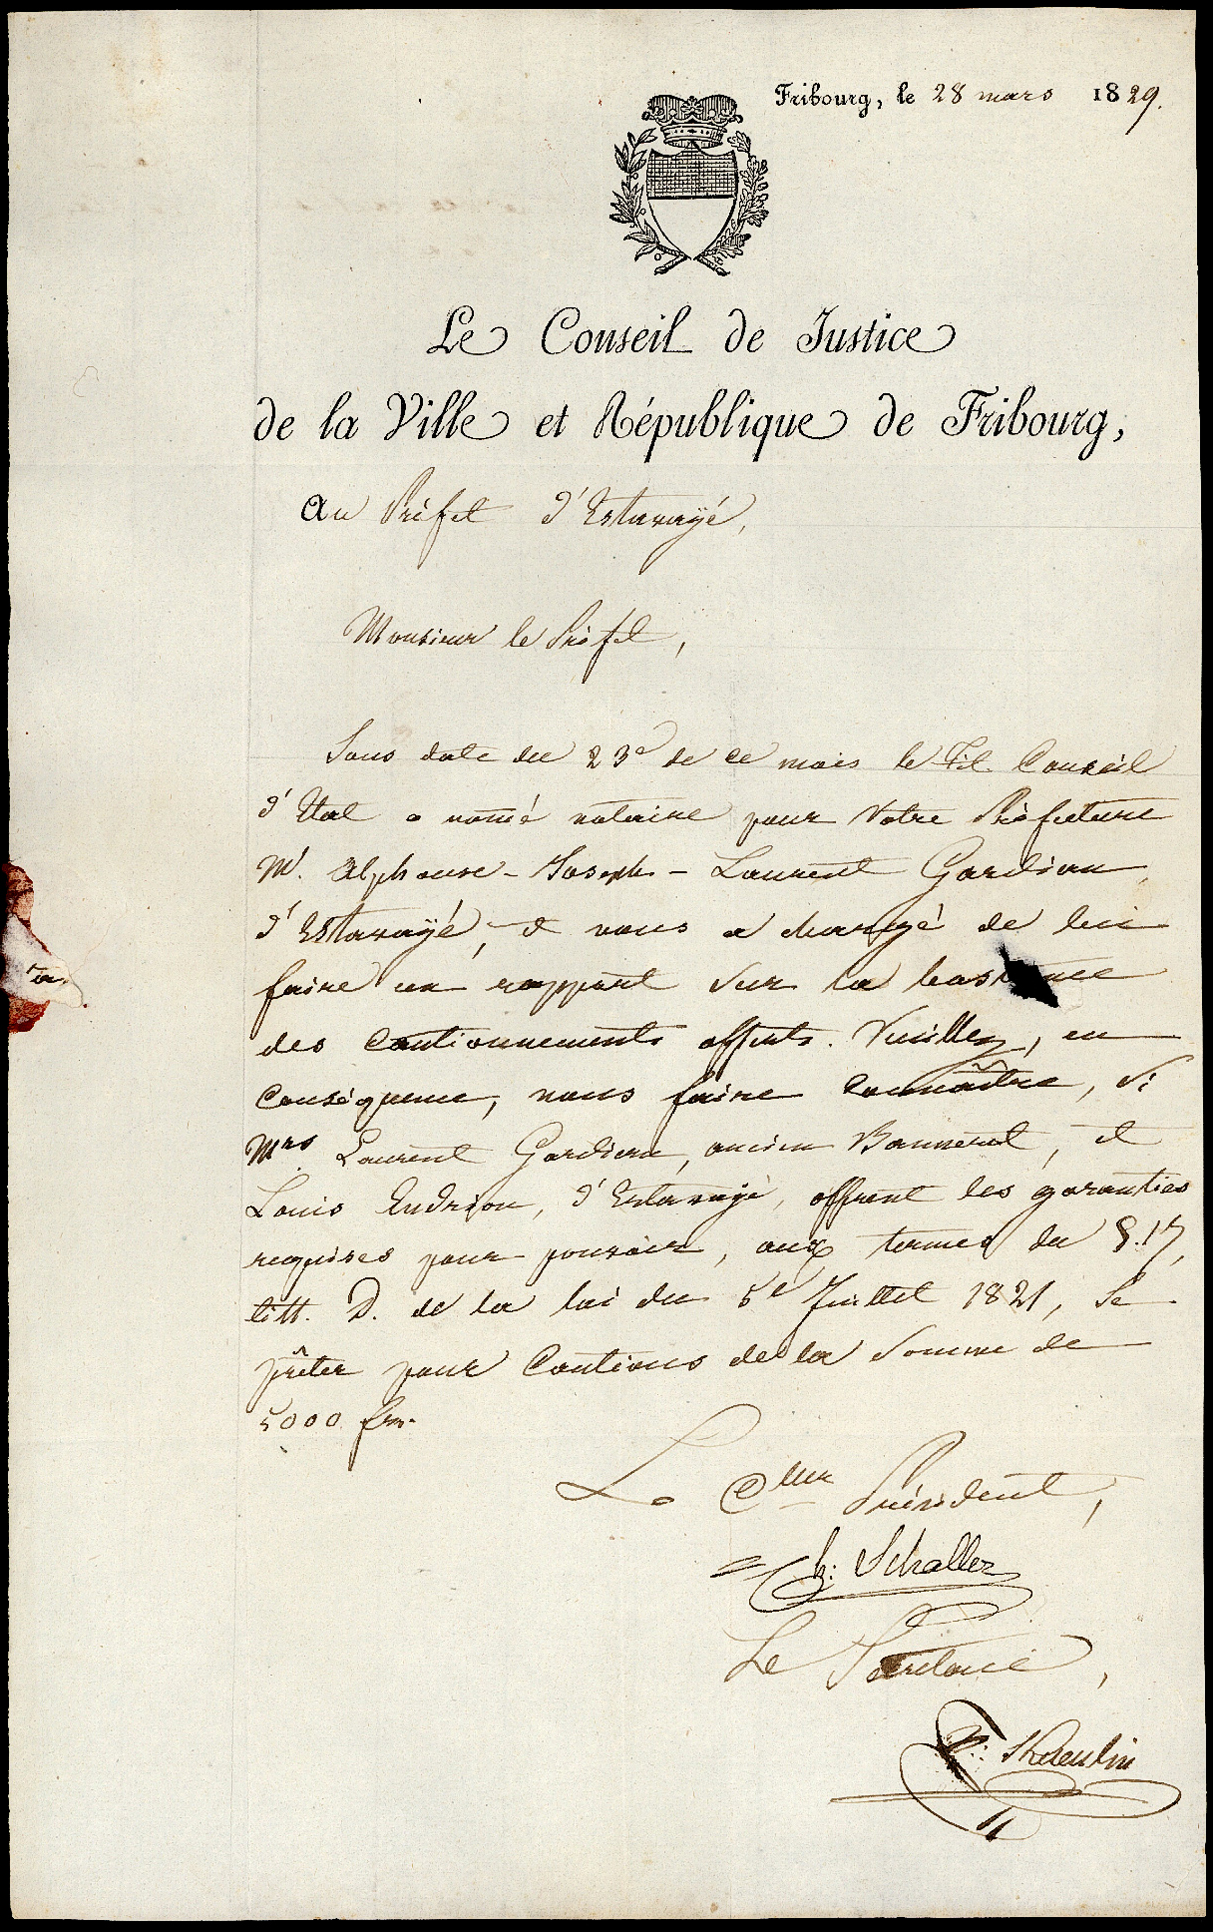 Fribourg, le 28 mars 1829.
Le Conseil de Justice
de la Ville et République de Fribourg,
au Préfet d'Estavayé,
Monsieur le Préfet,
Sous date du 23e de ce mois le Conseil
d'Etat a nomé notaire pour Votre Préfecture
Mr. Alphonse-Joseph-Laurent Gardian
d'Estavayé, et nous a chargé de lui
faire un rapport sur la
des Cautionnements offerts. Veuillez, en
Conséquence, nous faire Connaître, si
Mrs Laurent Gardian, ancien Banneret, et
Louis Endrion, d'Estavayé, offrent les garanties
requises pour pouvoir, aux termes du §. 17,
litt. D. de la loi du 5e Juillet 1821, se
prêter pour Cautions de la Somme de
5000 frs.
Le Cller Président,
Schaller
Le